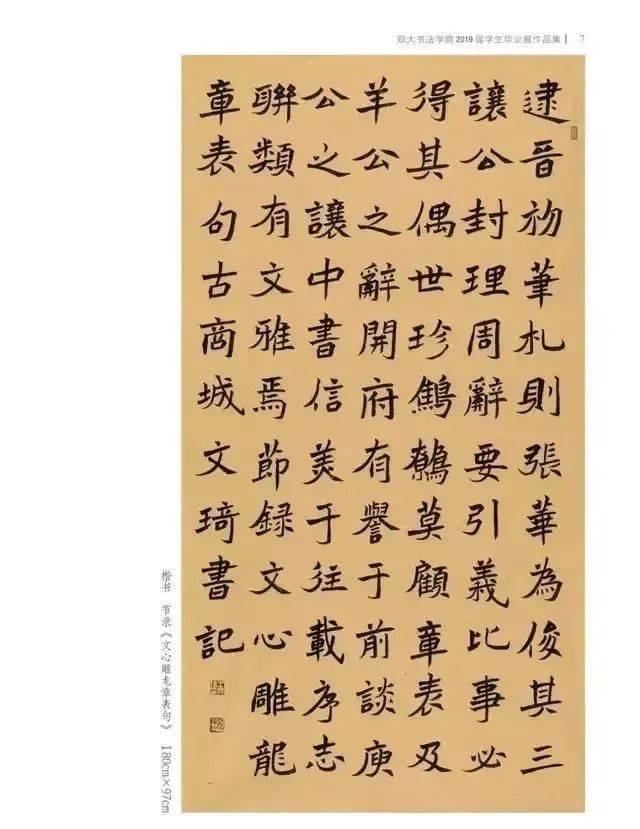 郑大书法学院2019届学生毕业展作品集 7
逮晉初筆札則張華為俊其三
讓公封理周辭要引義比事必
得其偶世珍鷦鷯莫顧章表及
羊公之辭開府有譽于前談庾
公之讓中書信美于往載序志
聯類有文雅焉節録文心雕龍
章表句古商城文琦書記
楷书 节录《文心雕龙章表句》 180cm×97cm